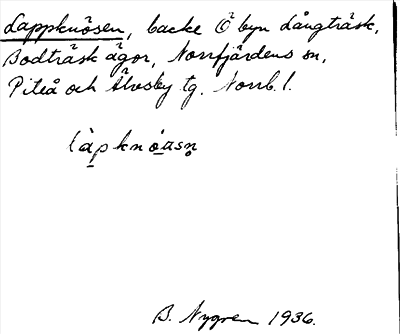 Lappknösen, backe Ö byn Långträsk,
Bodträsk ägor, Norrfjärdens sn,
Piteå och Älvsby tg. Norrb. l.
låpknöasn
B. Nygren 1936.